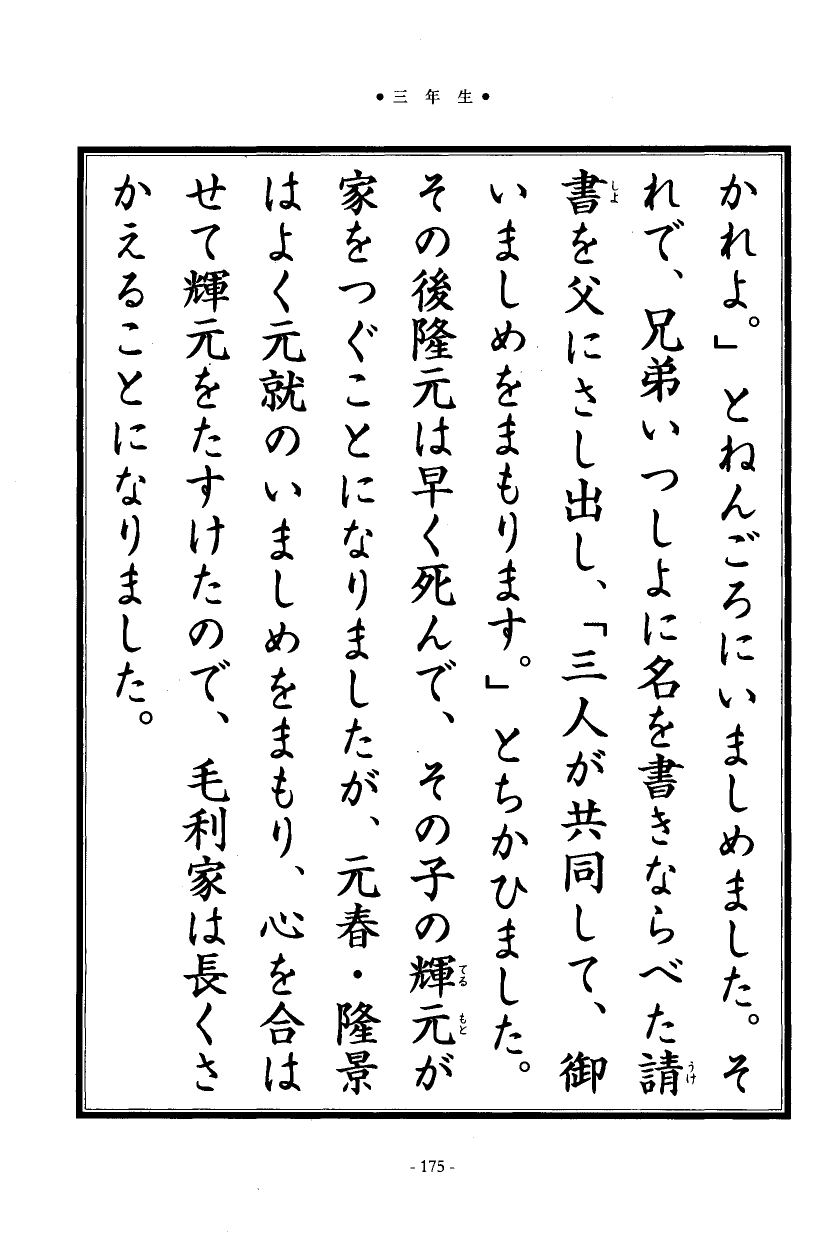 ●三年生●
かれよ。」とねんごろにいましめました。そ
れで、兄弟いつしよに名を書きならべた請
書を父にさし出し、「三人が共同して、御
いましめをまもります。」とちかひました。
その後隆元は早く死んで、その子の輝元が
家をつぐことになりましたが、元春・隆景
はよく元就のいましめをまもり、心を合は
せて輝元をたすけたので、毛利家は長くさ
かえることになりました。
うけ
しよ
てる もと
- 175 -